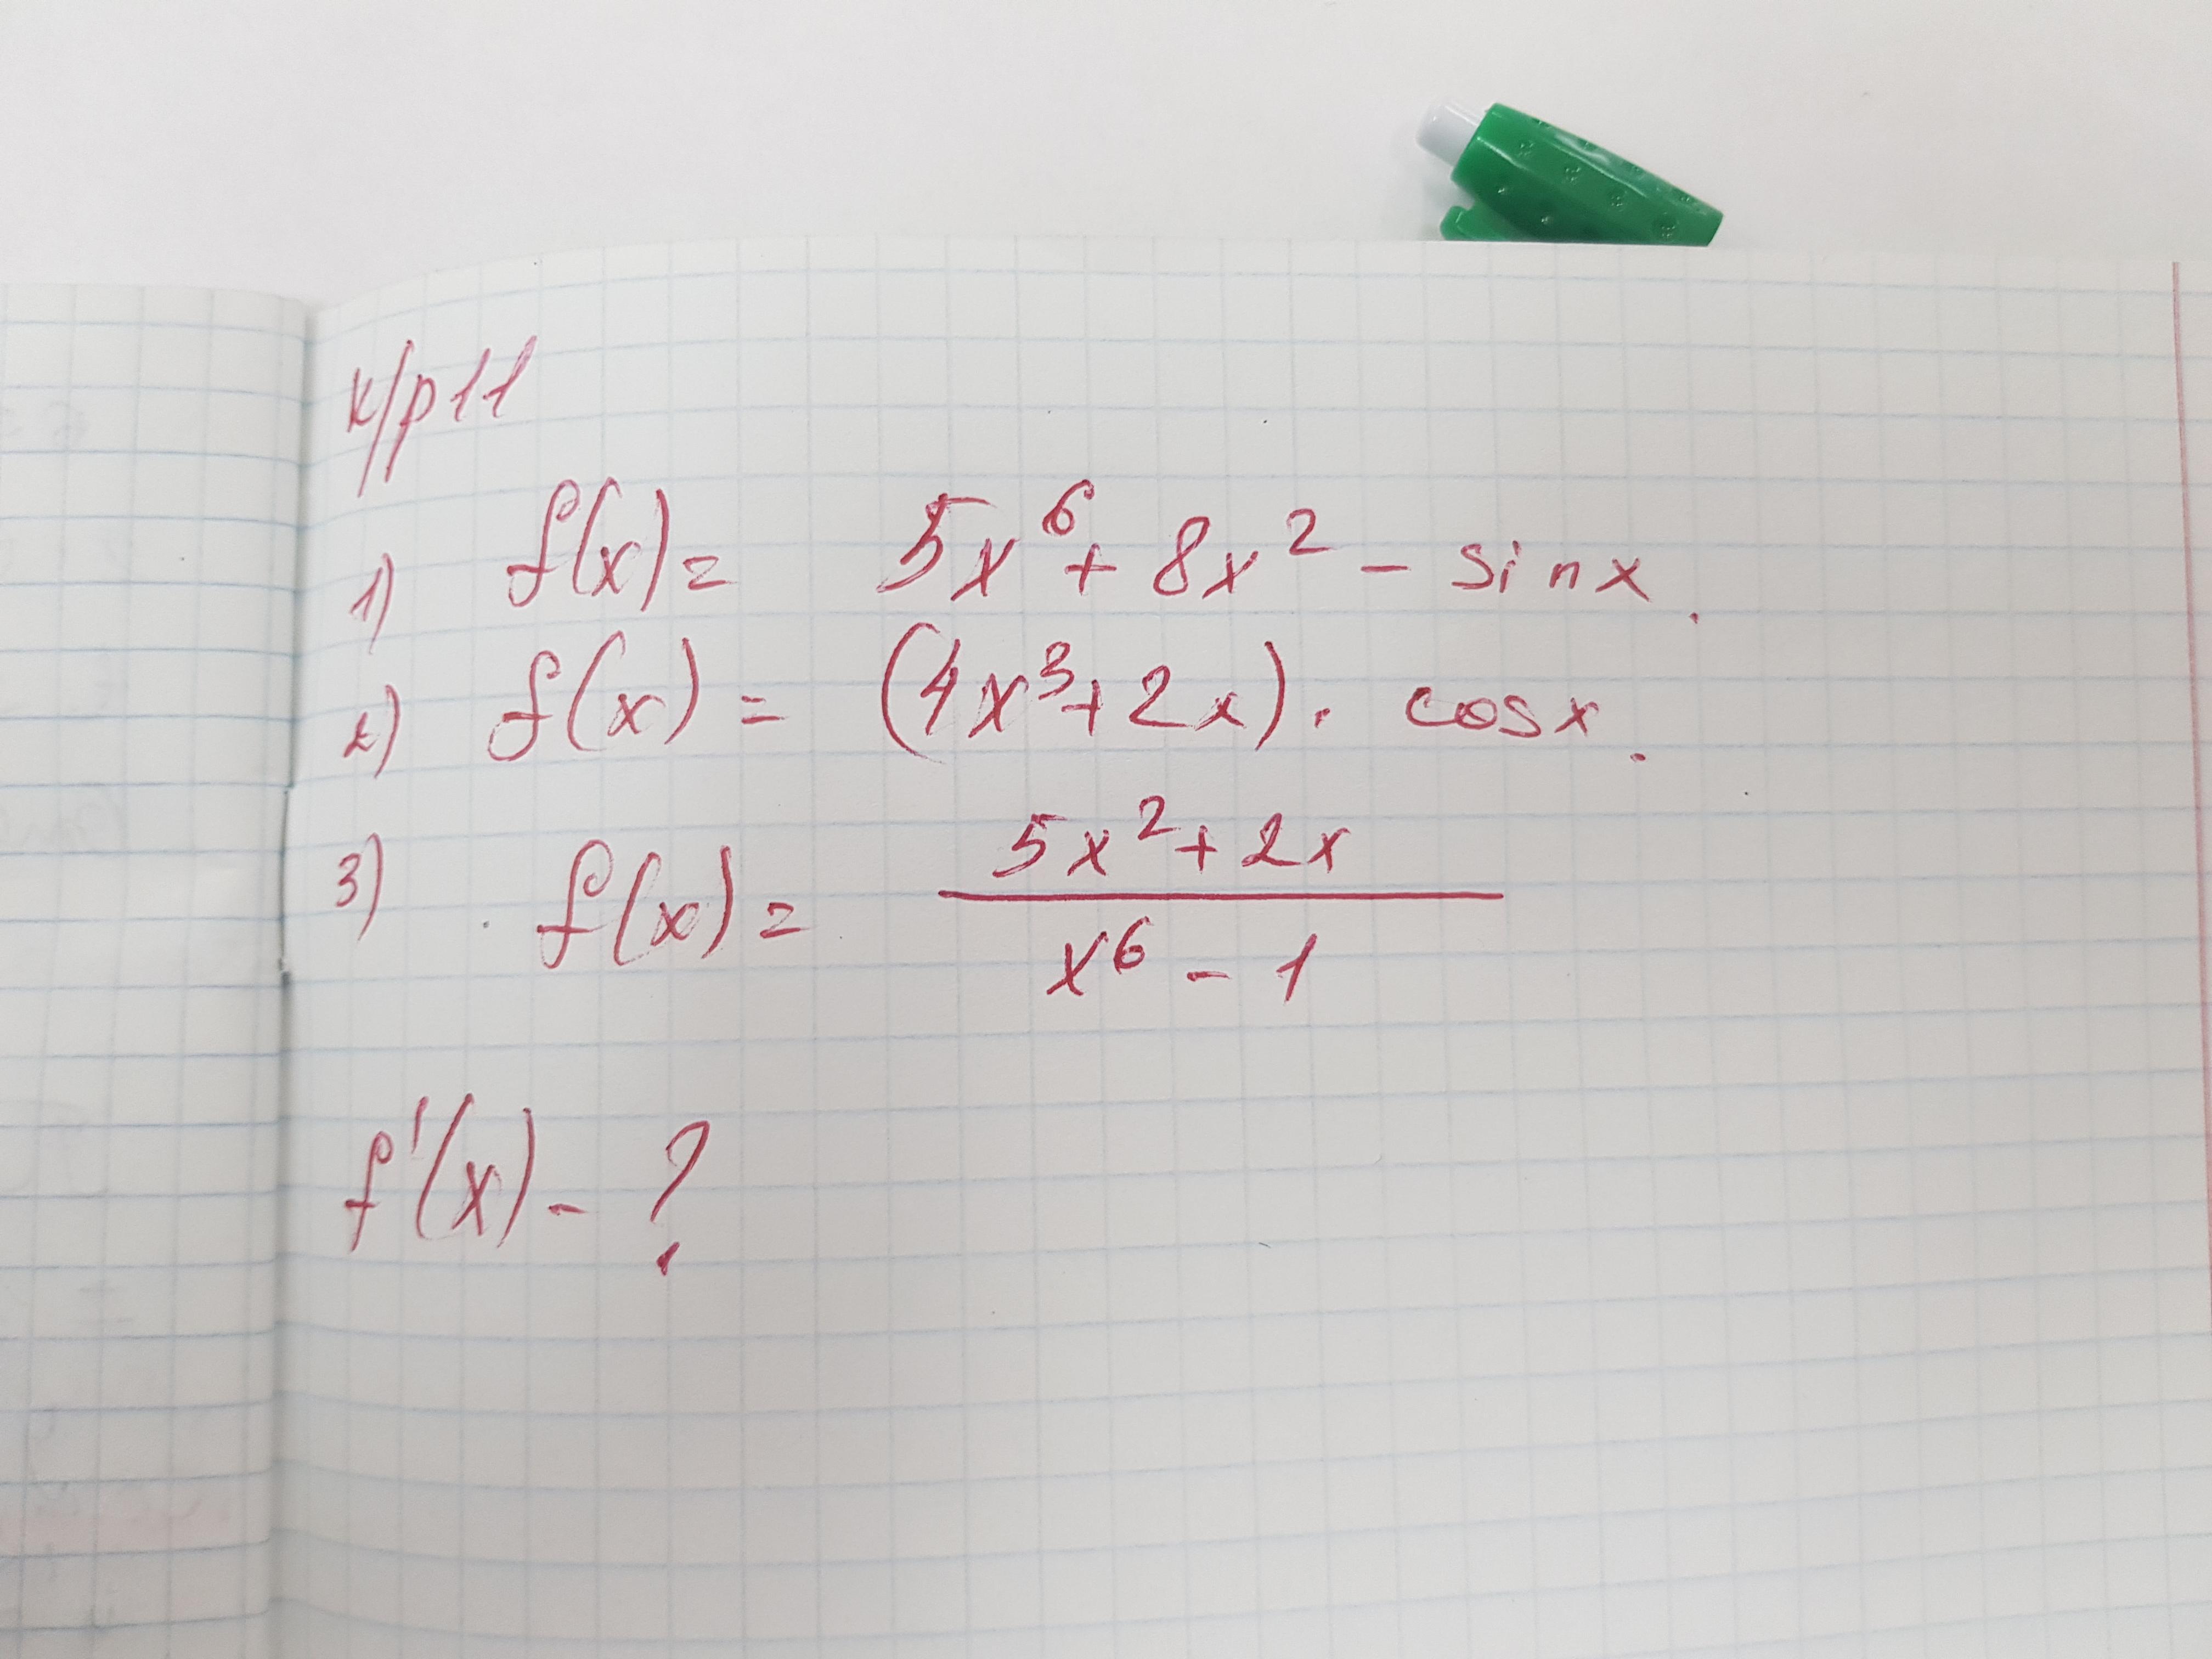 к/р 11
1) f(x) = 5x⁶ + 8x² - sin x.
2) f(x) = (4x³ + 2x) · cos x.
3) f(x) = (5x² + 2x) / (x⁶ - 1)
f'(x) - ?